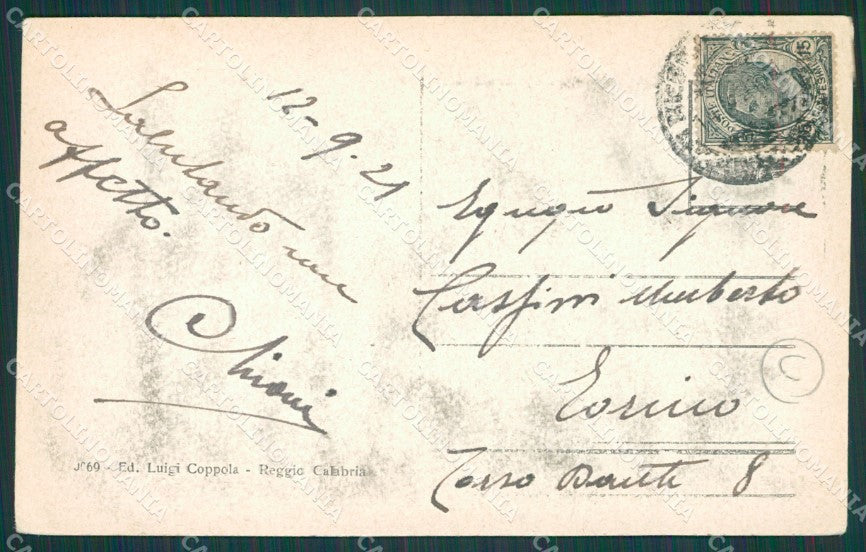 12-9.21
Salutando con
affetto.
Chioni
Egregio Signore
Cassini Umberto
Torino
Corso Dante 8
POSTE ITALIANE
15
Ed. Luigi Coppola - Reggio Calabria
CARTOLINOMANIA